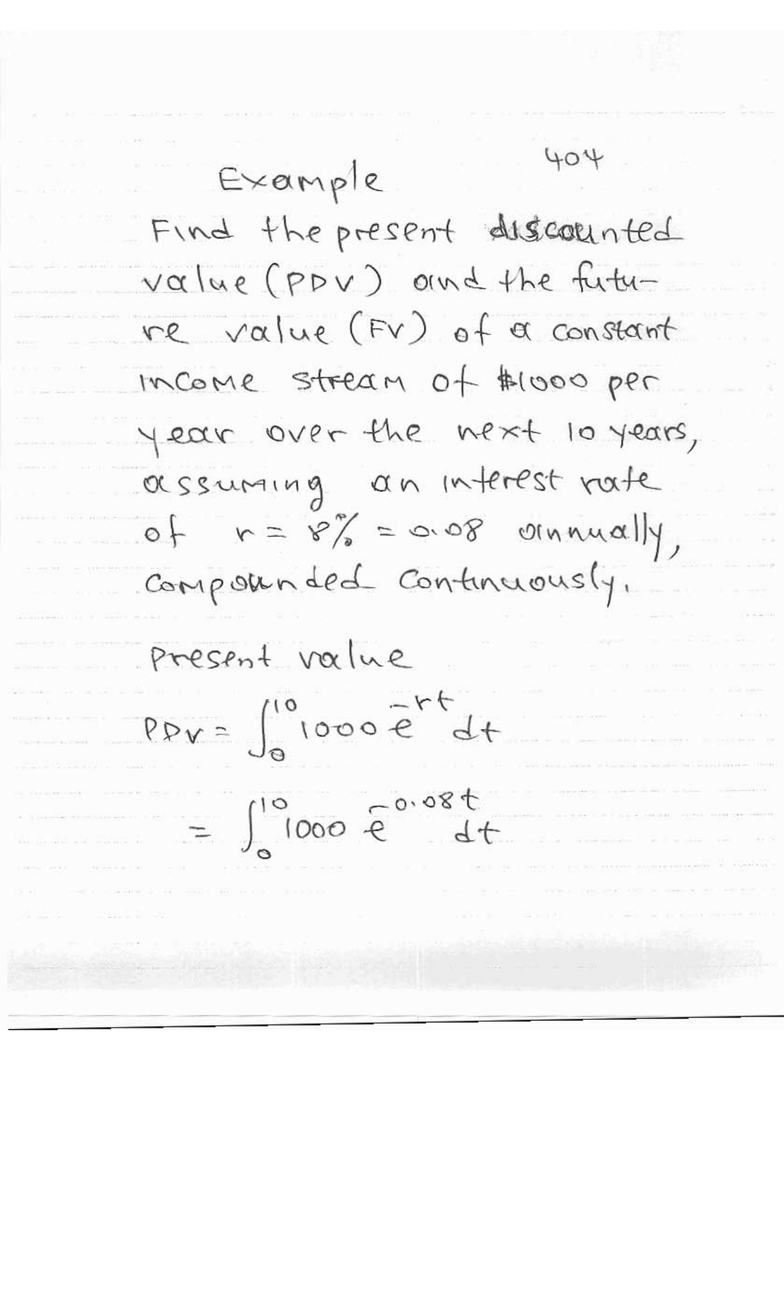 404
Example
Find the present discounted
value (PDV) and the futu-
re value (FV) of a constant
income stream of $1000 per
year over the next 10 years,
assuming an interest rate
of r = 8% = 0.08 annually,
compounded continuously.
Present value
PDV = ∫₀¹⁰ 1000 e^{-rt} dt
= ∫₀¹⁰ 1000 e^{-0.08t} dt